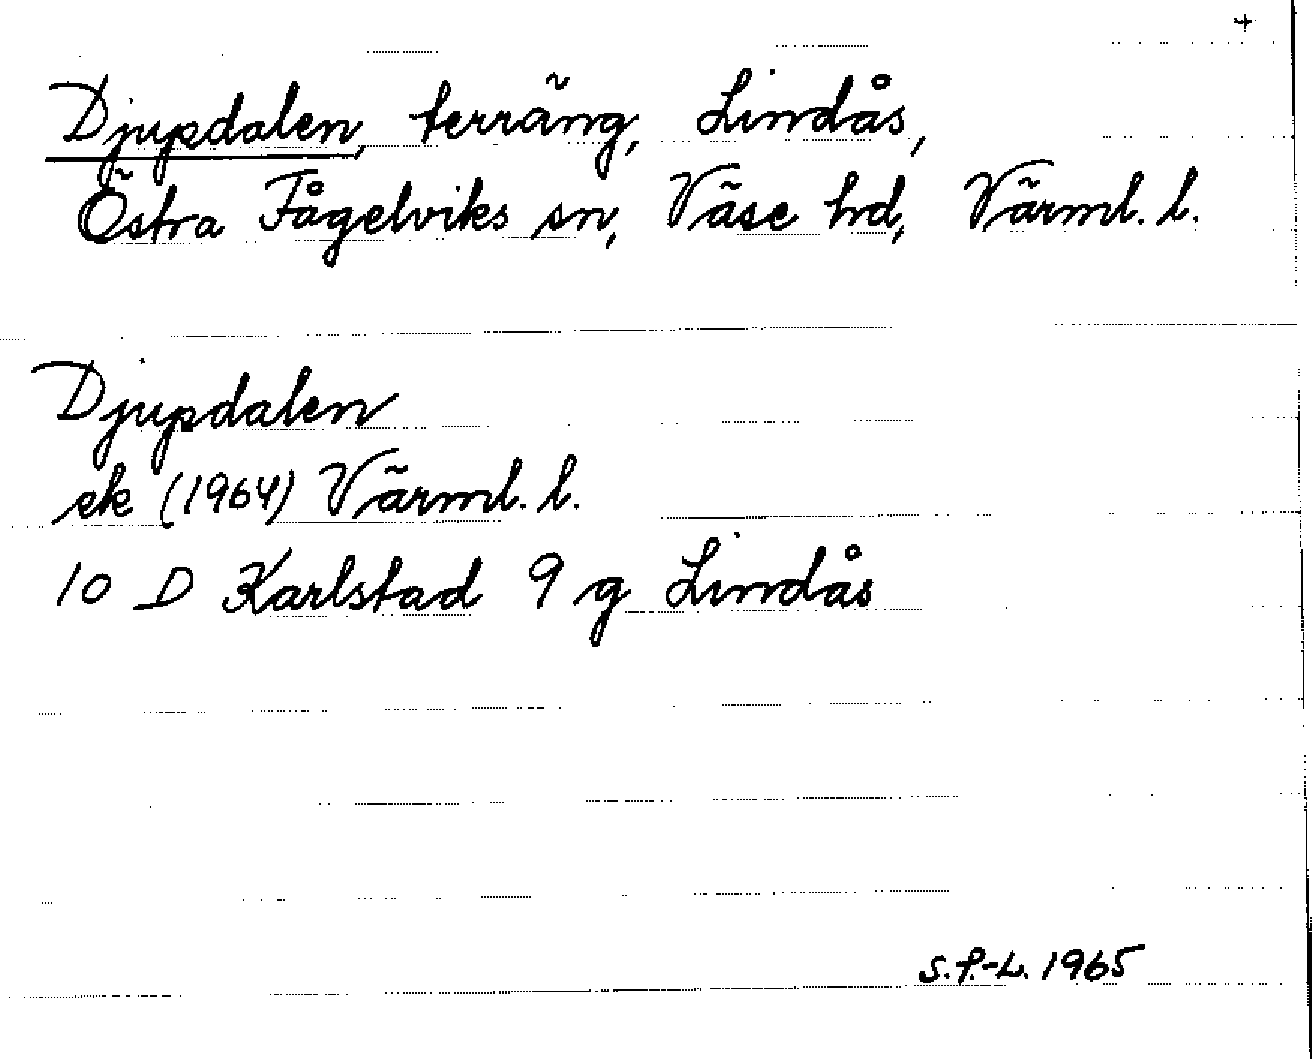 +
Djupdalen, terräng, Lindås,
Östra Fågelviks sn, Väse hd, Värml. l.
Djupdalen
ek (1964) Värml. l.
10 D Karlstad 9 g Lindås
S.P.-L. 1965